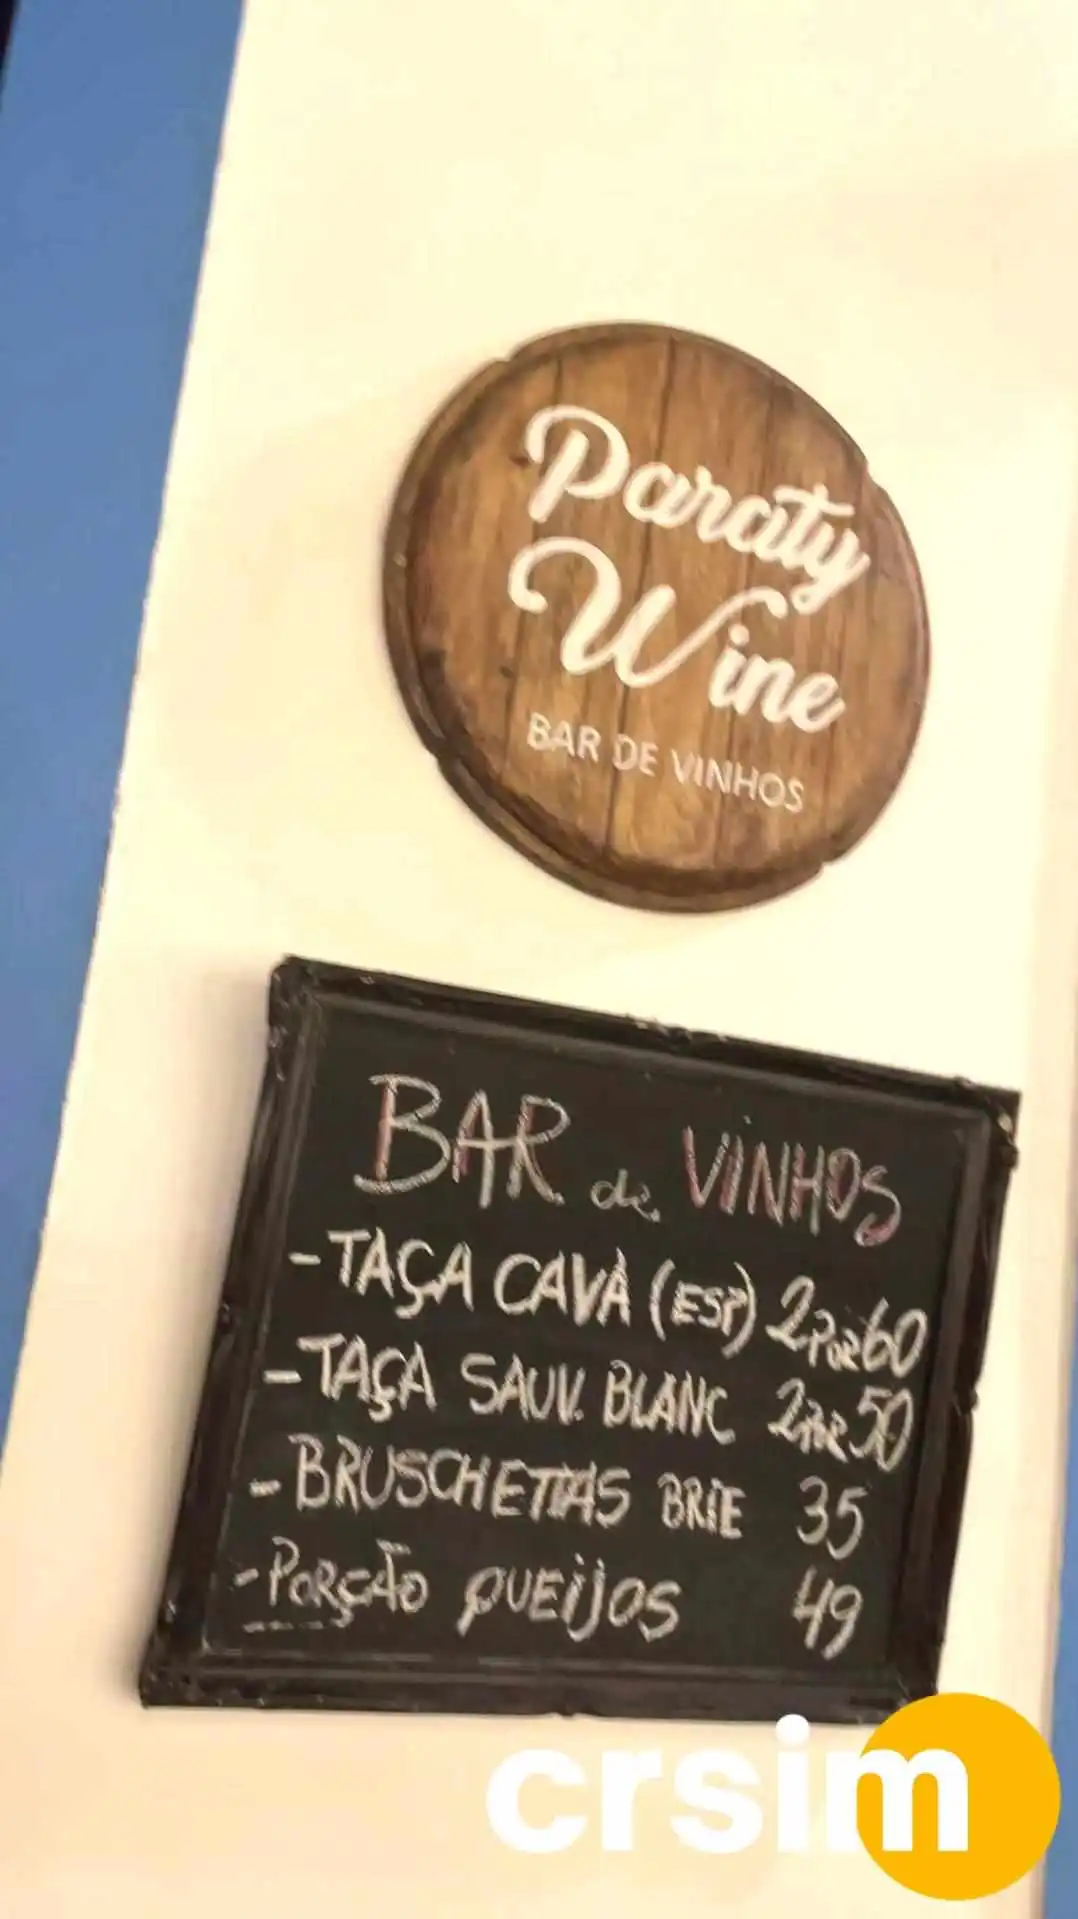 Paraty
Wine
BAR DE VINHOS
BAR de VINHOS
- TAÇA CAVA (ESP) 2 POR 60
- TAÇA SAUV. BLANC 2 POR 50
- BRUSCHETTAS BRIE 35
- PORÇÃO QUEIJOS 49
crsim